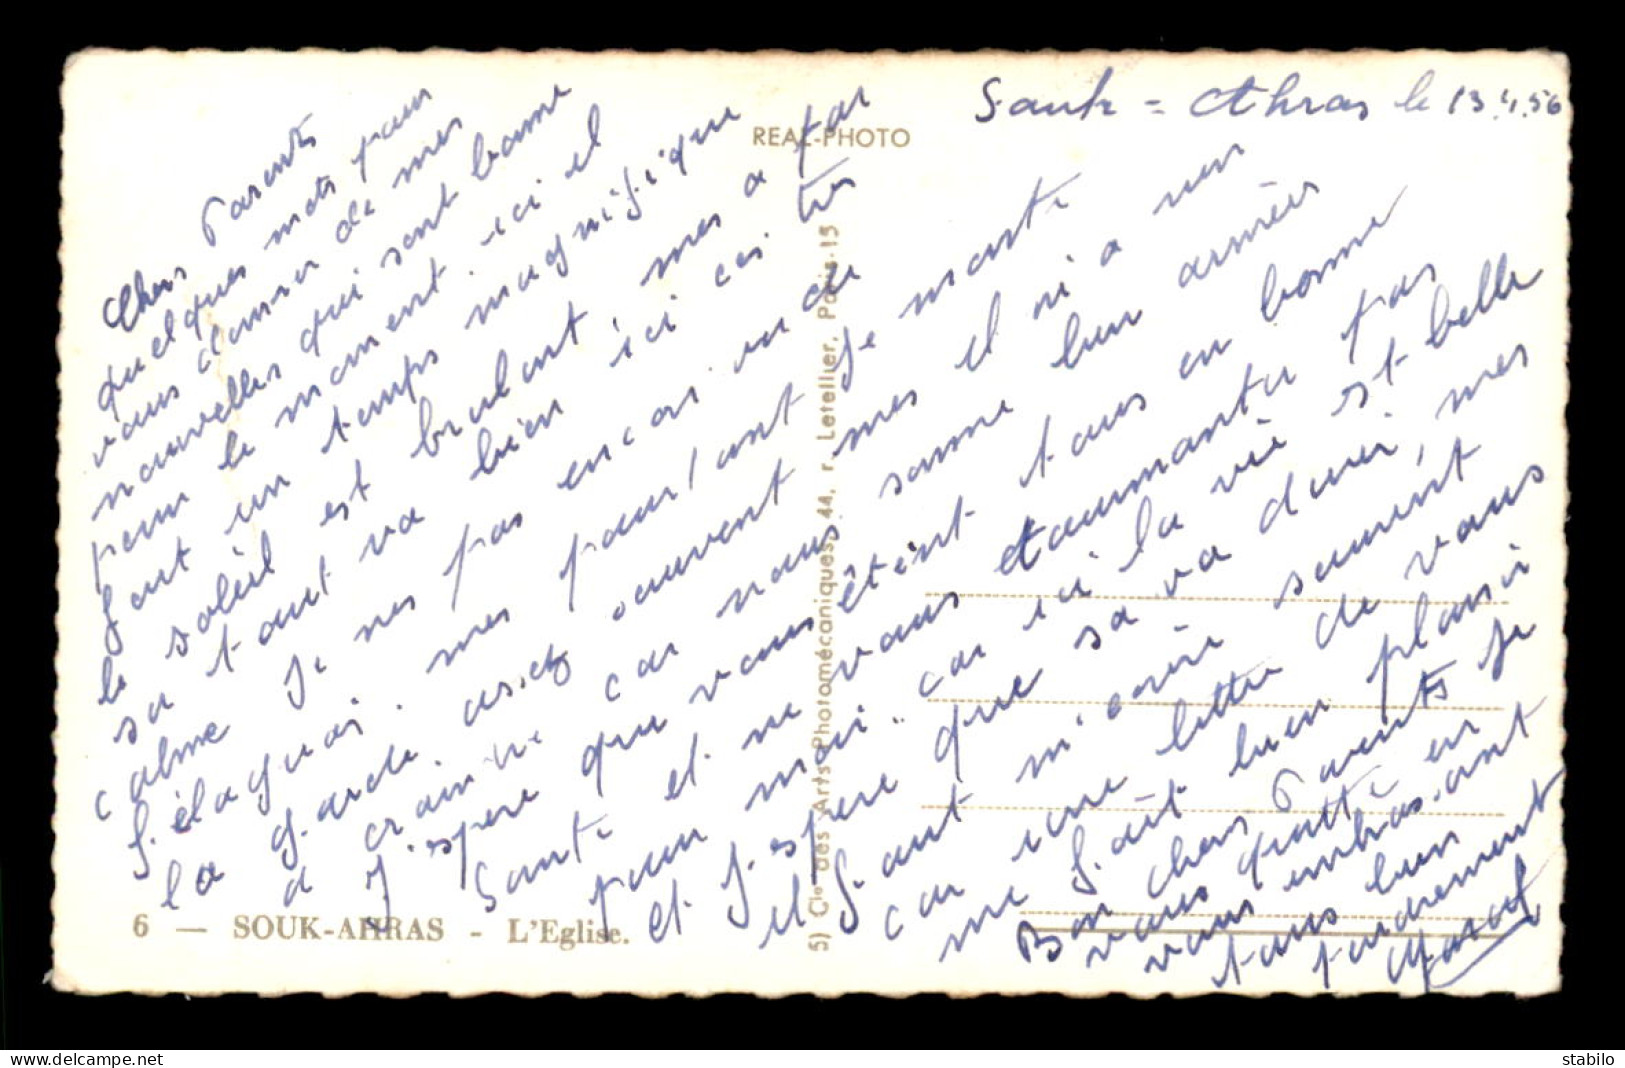 Souk-Ahras le 13.4.56
REAL-PHOTO
Chers Parents
quelques mots pour
vous donner de mes
nouvelles qui sont bonne
pour le moment ici il
fait un temps magnifique
le soleil est brulant mes a par
sa tout va bien ici ces très
calme Je nes pas encor vu de
félaguas. mes pourtant Je monte
la garde assez souvent mes il ni a rien
a crainte car nous somme bien armées
J'espere que vous étént tous en bonne
Santé et ne vous tourmanter pas
pour moi. car ici la vie est belle
et J.espere que sa va durer, mes
il faut m'ecrire souvent
car une lettre de vous
me fait bien plaisir
Bon chers Parents Je
vous quitte en
vous embras.ant
tous bien
tendrement
5) Cie des Arts Photomécaniques, 44, r. Letellier, Paris-15
6 — SOUK-AHRAS - L'Eglise.
www.delcampe.net
stabilo